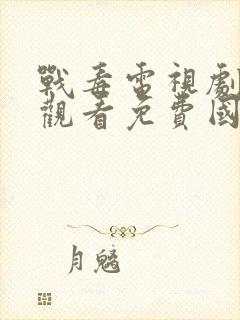 戰毒電視劇
觀看免費國
月魑